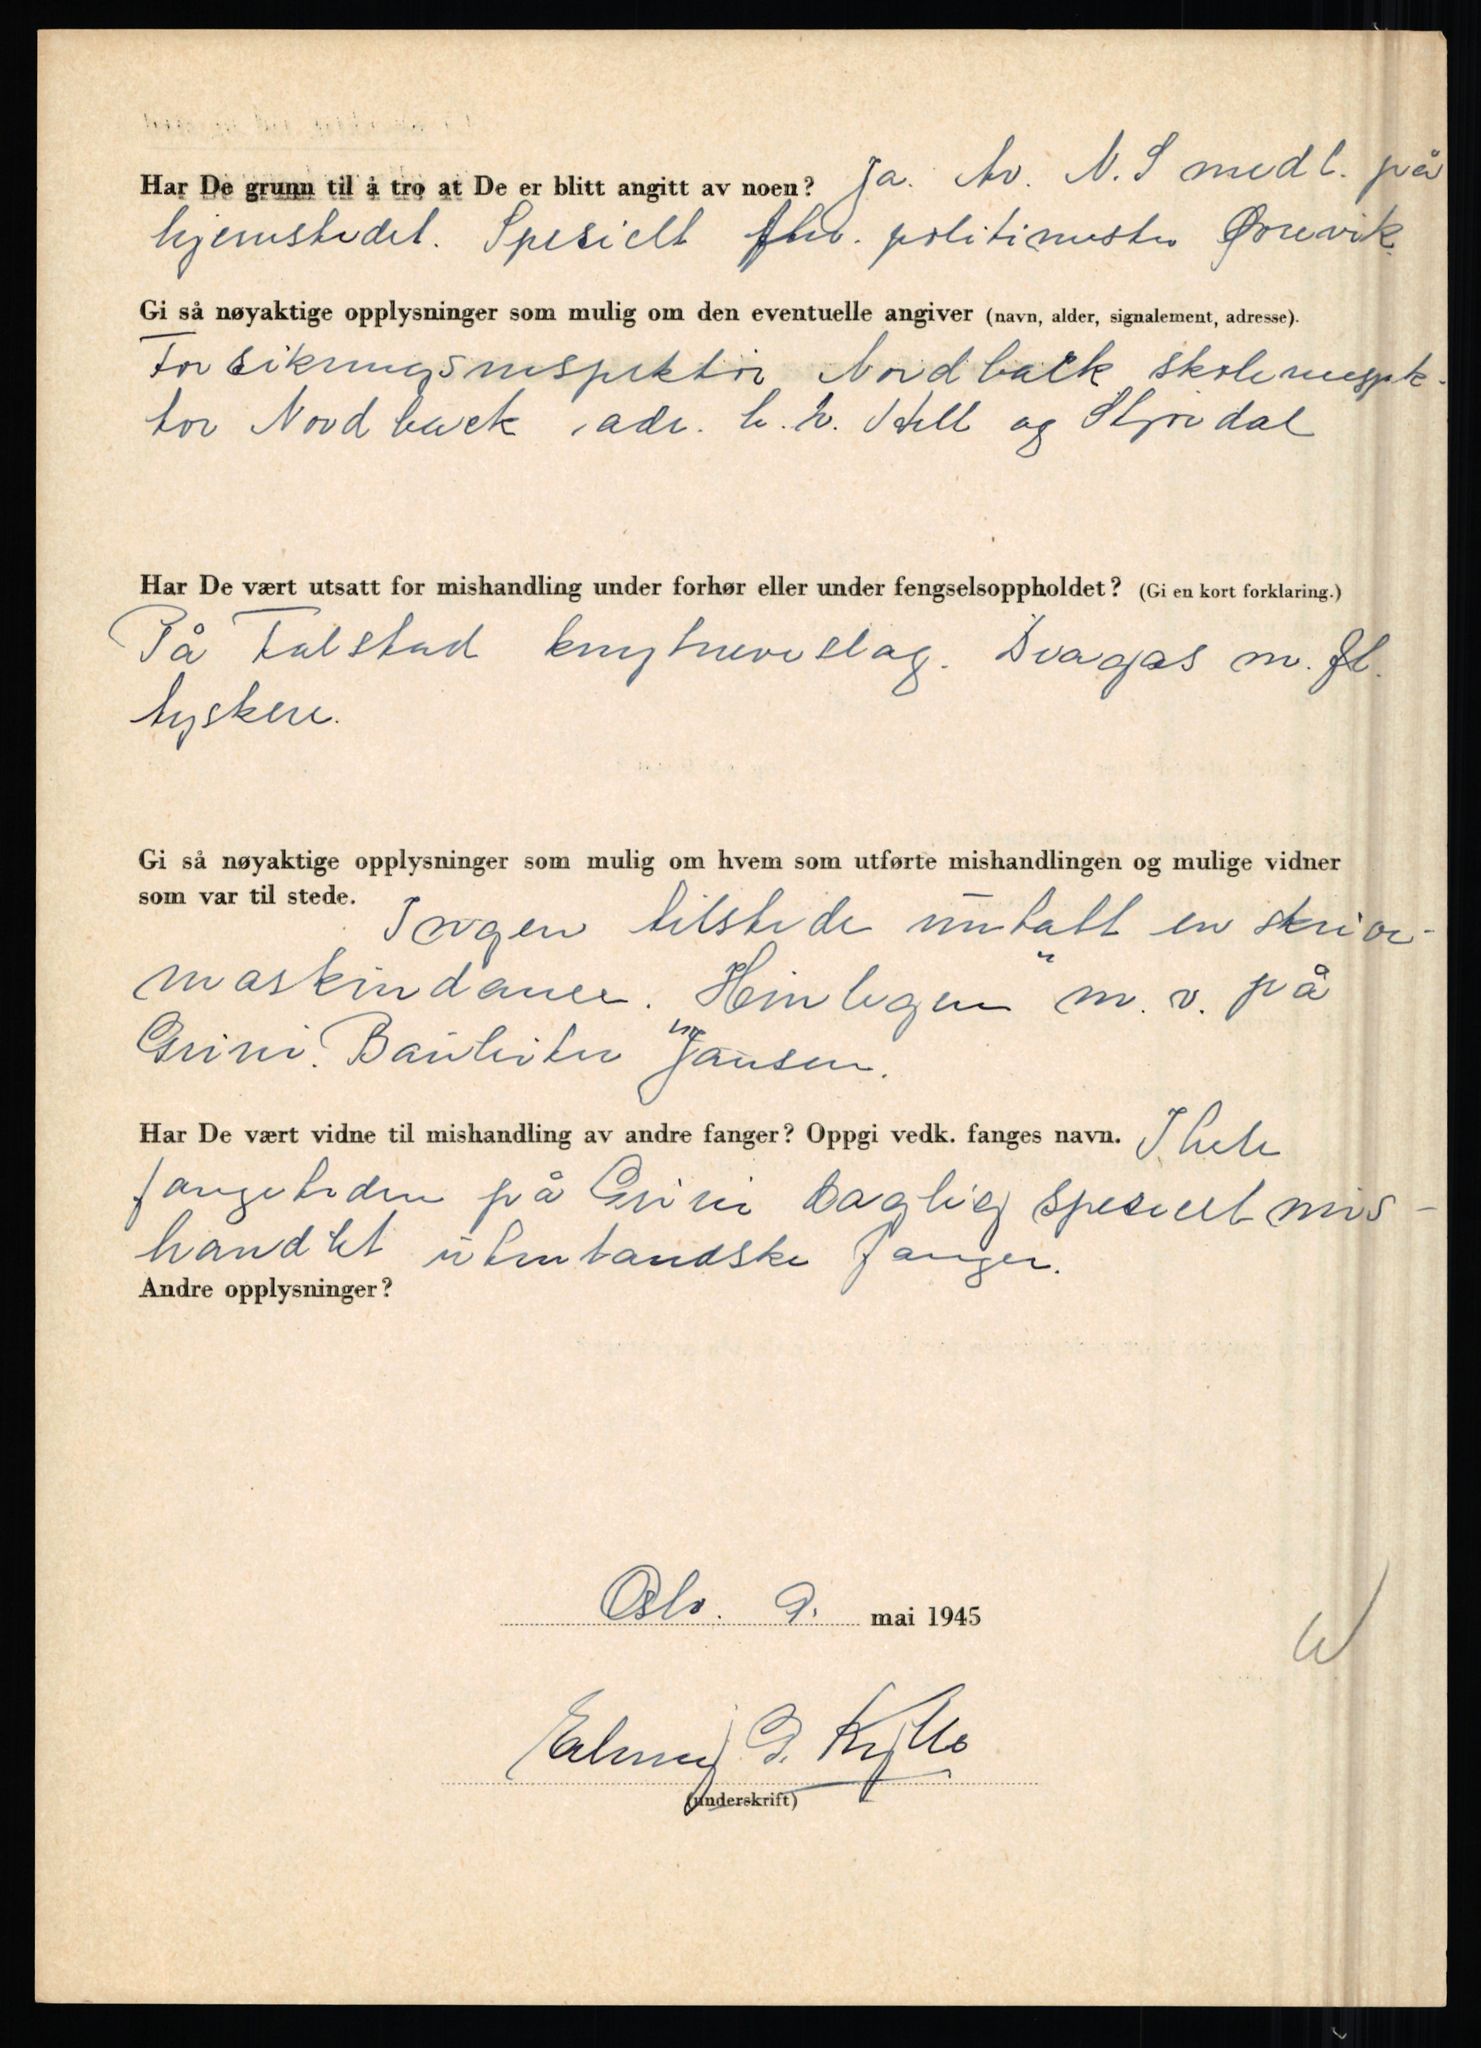 Har De grunn til å tro at De er blitt angitt av noen? Ja. Av. N.S medl. på
hjemstedet. Spesielt fhv. politimester Ørevik
Gi så nøyaktige opplysninger som mulig om den eventuelle angiver (navn, alder, signalement, adresse).
Forsikringsinspektør Nordback skoleinspek-
tør Nordback, adr. h.h. Hell og Stjørdal
Har De vært utsatt for mishandling under forhør eller under fengselsoppholdet? (Gi en kort forklaring.)
På Falstad knytneveslag. Dragas m. fl.
tyskere.
Gi så nøyaktige opplysninger som mulig om hvem som utførte mishandlingen og mulige vidner
som var til stede.
Ingen tilstede untatt en skriv-
maskindame. "Hinlegen" m. v. på
Grini. Bauleiter Jansen.
Har De vært vidne til mishandling av andre fanger? Oppgi vedk. fanges navn. I hele
fangetiden på Grini daglig spesielt mis-
handlet utenlandske fanger.
Andre opplysninger?
Oslo. 9. mai 1945
G. Kyllo
(underskrift)
W